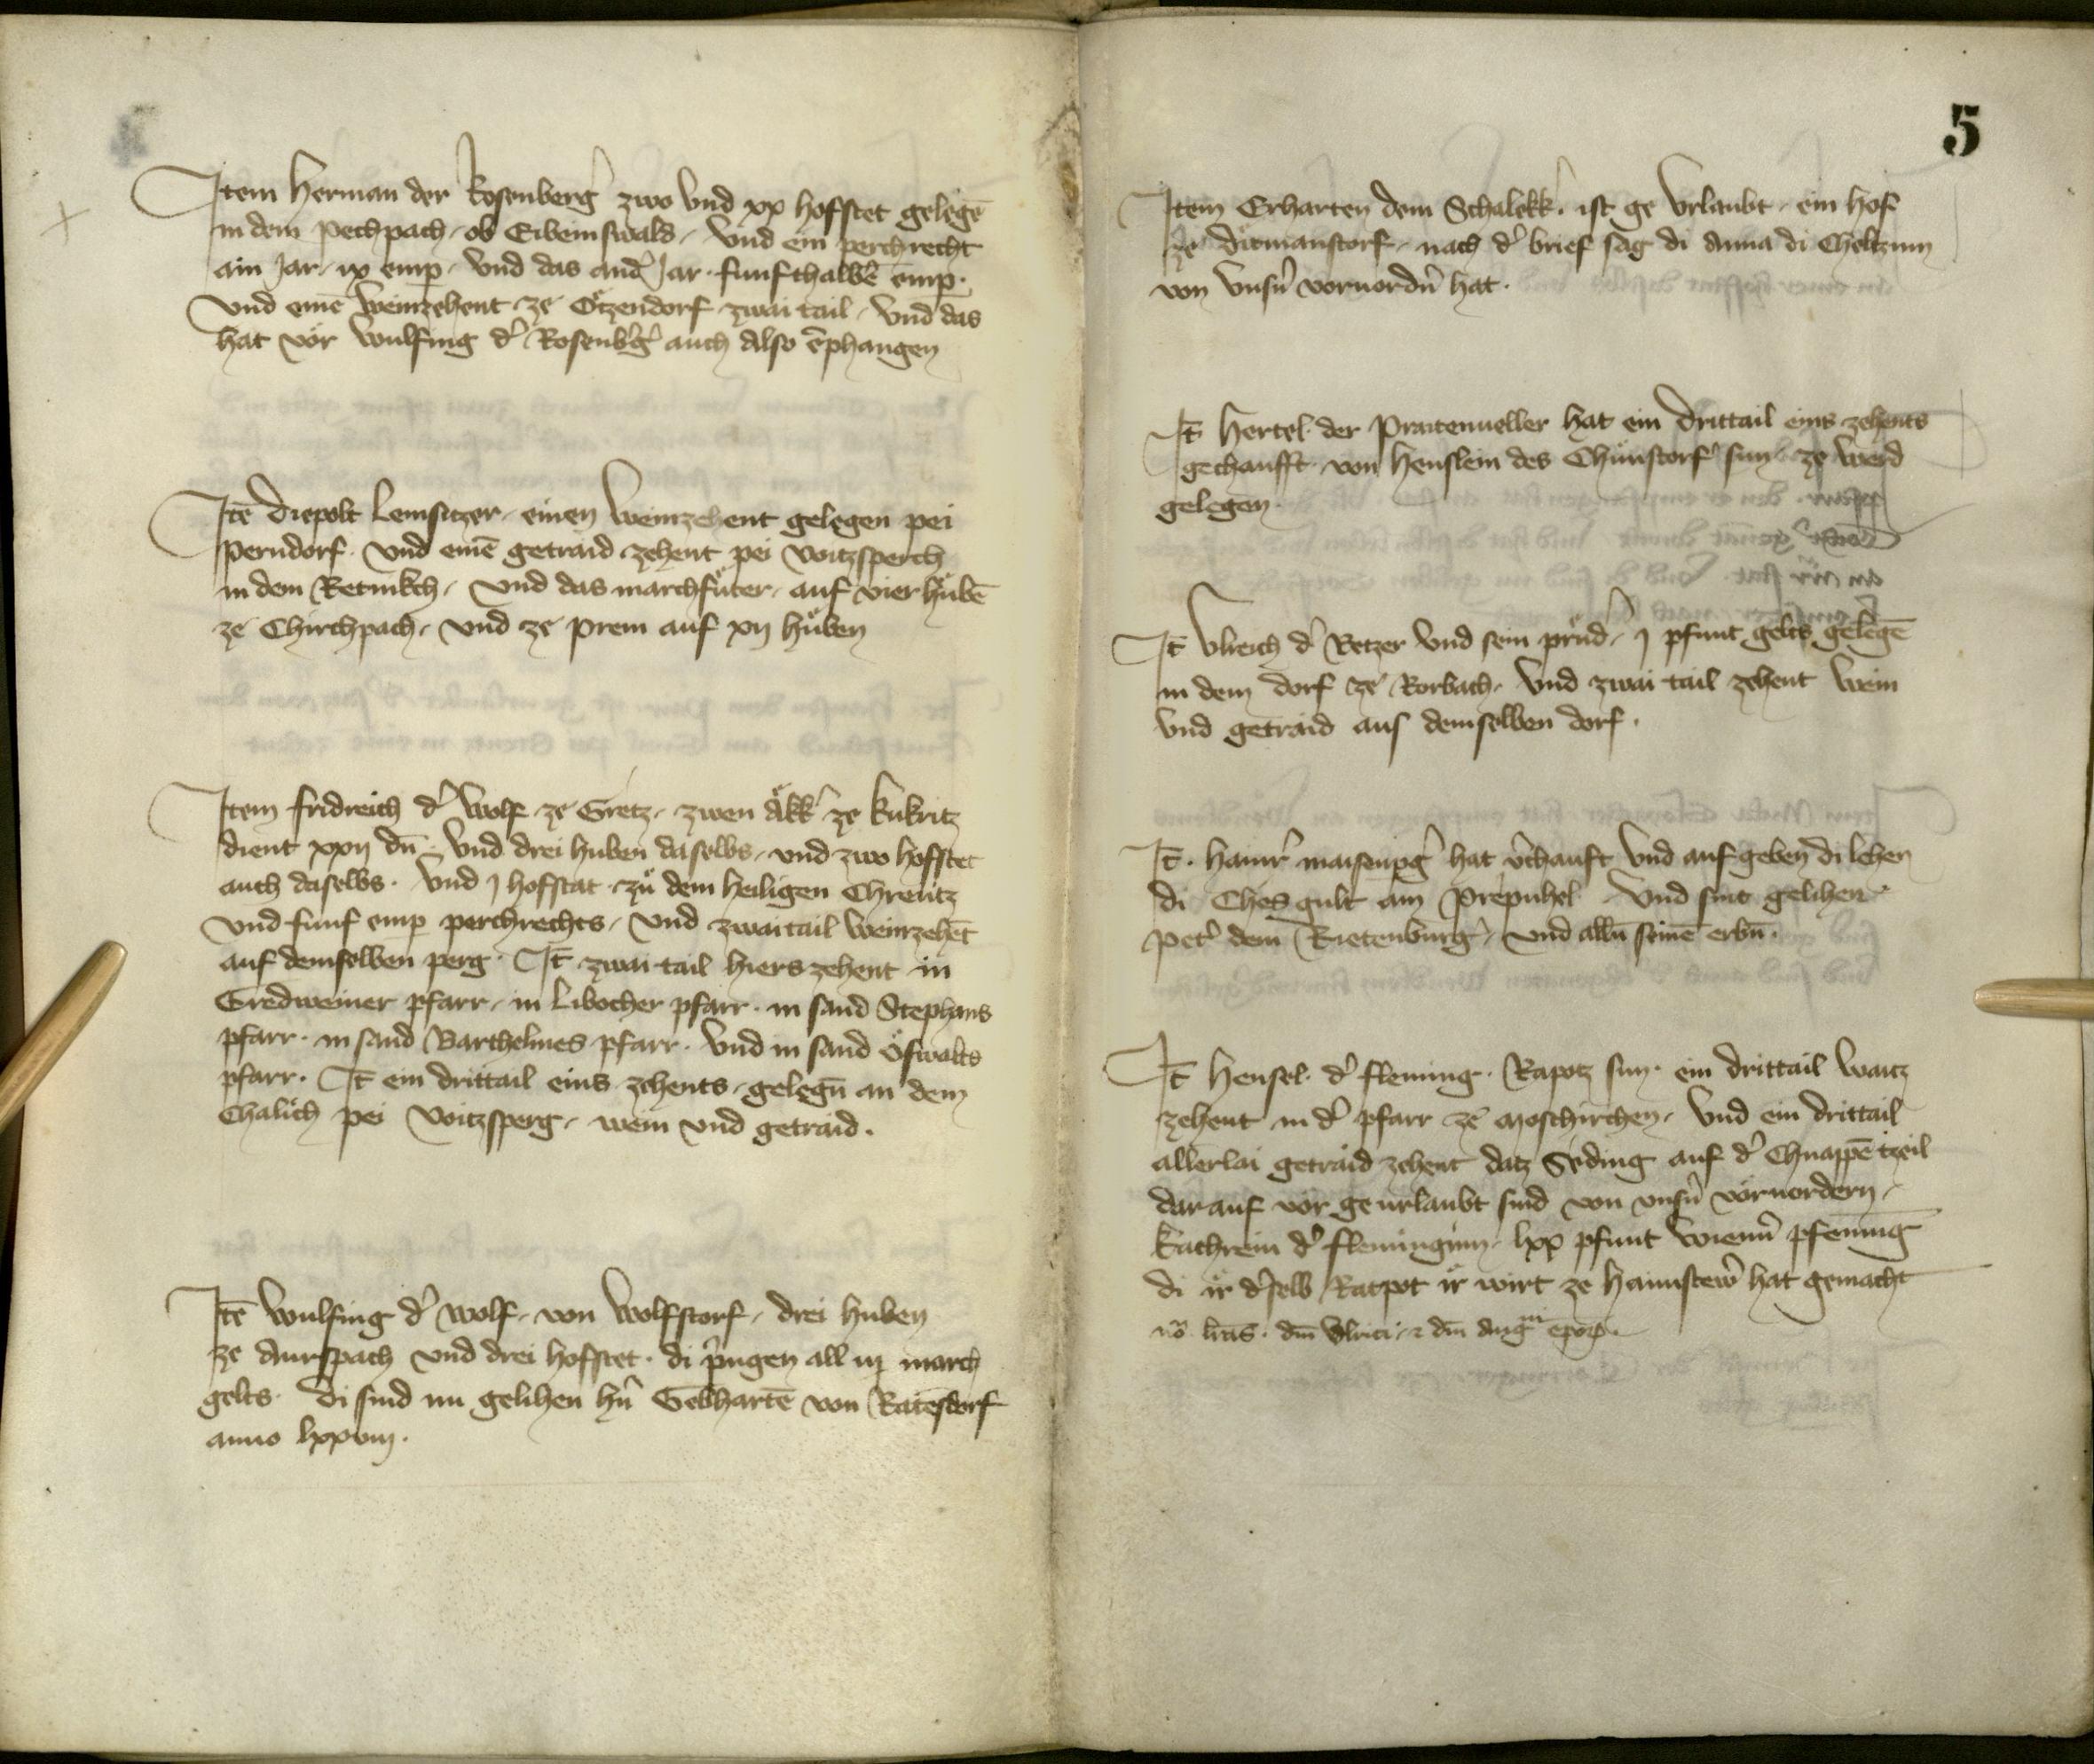 Item Herman der Rosenberg̉ zwo vnd xx hofstet gelegē
in dem Pechpach, ob Eibeinswald, vnd ein perchrecht
ain Jar, ix emp̱, vnd das and̉ Jar funfthalbē emp̱.
vnd einē weinzehent ze Oͤtzendorf zwai tail, vnd das
hat vor wulfing d̉ Rosenb̉g̉ auch also ēphangen
Itē diepolt Lemsitzer, einen weinzehent gelegen pei
Perndorf. vnd einē getraid zehent pei Voitzsperch
in dem Retnikch, vnd das marchfuͤter, auf vier huͤbē
ze Chirchpach, vnd ze Prem auf xij huͤben
Item fridreich d̉ Wolf ze Gretz, zwen aͤkk̉ ze kukritz
dient xxij dn̄, vnd drei huben daselbs, vnd zwo hofstet
auch daselbs. vnd j hofstat zuͤ dem heiligen Chreutz
vnd funf emp̱ perchrechts, vnd zwaitail weinzehēt
auf demselben perg. It̄ zwai tail hierszehent in
Gredweiner pfarr, in Libocher pfarr. in sand Stephans
pfarr. in sand Barthelmes pfarr. vnd in sand Oͤswalts
pfarr. It̄ ein drittail eins zehents, gelegn̄ an dem
Chaliͤch pei Voitzsperg, wein vnd getraid.
Itē wulfing d̉ wolf, von Wolfstorf, drei huben
ze Aurspach vnd drei hofstet. di p̉ngen all iij march
gelts. di sind nu gelihen hn̉ Gebhartē von Ratēsdorf
anno lxxviij.
5
Item Erharten dem Schalekk̉. ist ge vrlaubt, ein hof
ze diͤtmanstorf, nach d̉ brief sag di Anna di Cheltzinn
von vnsn̉ voruordn̉ hat.
It̄ Hertel der Praitenueller hat ein drittail eins zehents
gechaufft von henslein des Chuͤnstorf̉ sun ze werd
gelegen.
It̄ Vlreich d̉ Retzer vnd sein pruͤd̉, j pfunt gelts gelegē
in dem dorf ze Rorbach, vnd zwai tail zehent wein
vnd getraid aus demselben dorf.
It̄. Hainr̉ maisenp̱g̉ hat v̉chauft vnd aufgeben di lehen
di Chesgult am Prepuhel. vnd sint gelihen
Pet̉ dem Rietenburg̉, vnd alln̄ seinē erbn̄.
It̄ Hensel. d̉ fleming. Rapotz sun. ein drittail waitz
zehent in d̉ pfarr ze moschirchen, vnd ein drittail
allerlai getraid zehent datz Seͤding auf d̉ Chnappē tzeil
darauf vor geurlaubt sind von vnsn̉ voruordern,
kathrein d̉ flemingin, lxx pfunt wienn̉ pfennīg
di iͤr d̉selb Ratpot iͤr wirt ze haimstew̉ hat gemacht